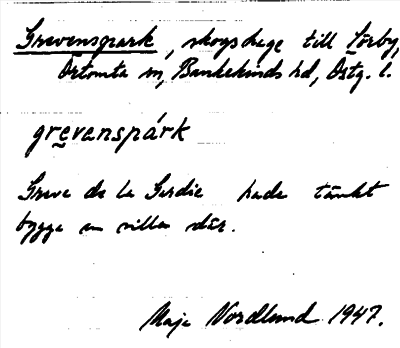 Grevenspark, skogshage till Lörby,
Örtomta sn, Bankekinds hd, Östg. l.
grevanspárk
Greve de la Gardie hade tänkt
bygga en villa där.
Maja Nordlund 1947.